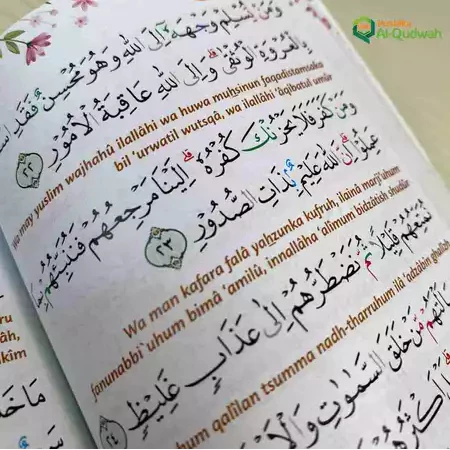 Pustaka
Al-Qudwah
وَمَنْ يُسْلِمْ وَجْهَهٗٓ اِلَى اللّٰهِ وَهُوَ مُحْسِنٌ فَقَدِ
بِالْعُرْوَةِ الْوُثْقٰىۗ وَاِلَى اللّٰهِ عَاقِبَةُ الْاُمُوْرِ ٢٢
wa may yuslim wajhahû ilallâhi wa huwa muhsinun faqadistamsaka
bil 'urwatil wutsqâ, wa ilallâhi 'âqibatul umûr
وَمَنْ كَفَرَ فَلَا يَحْزُنْكَ كُفْرُهٗۗ اِلَيْنَا مَرْجِعُهُمْ فَنُنَبِّئُهُمْ
عَمِلُوْاۗ اِنَّ اللّٰهَ عَلِيْمٌۢ بِذَاتِ الصُّدُوْرِ ٢٣
Wa man kafara falâ yahzunka kufruh, ilainâ marji'uhum
fanunabbi'uhum bimâ 'amilû, innallâha 'alîmum bidzâtish shudûr
نُمَتِّعُهُمْ قَلِيْلًا ثُمَّ نَضْطَرُّهُمْ اِلٰى عَذَابٍ غَلِيْظٍ
hum qalîlan tsumma nadh-tharruhum ilâ 'adzâbin ghalîzh
سَاَلْتَهُمْ مَّنْ خَلَقَ السَّمٰوٰتِ وَالْاَ
٢٤
اَكْثَرُهُمْ
ru
âh,
kîm
مَا خَلَ